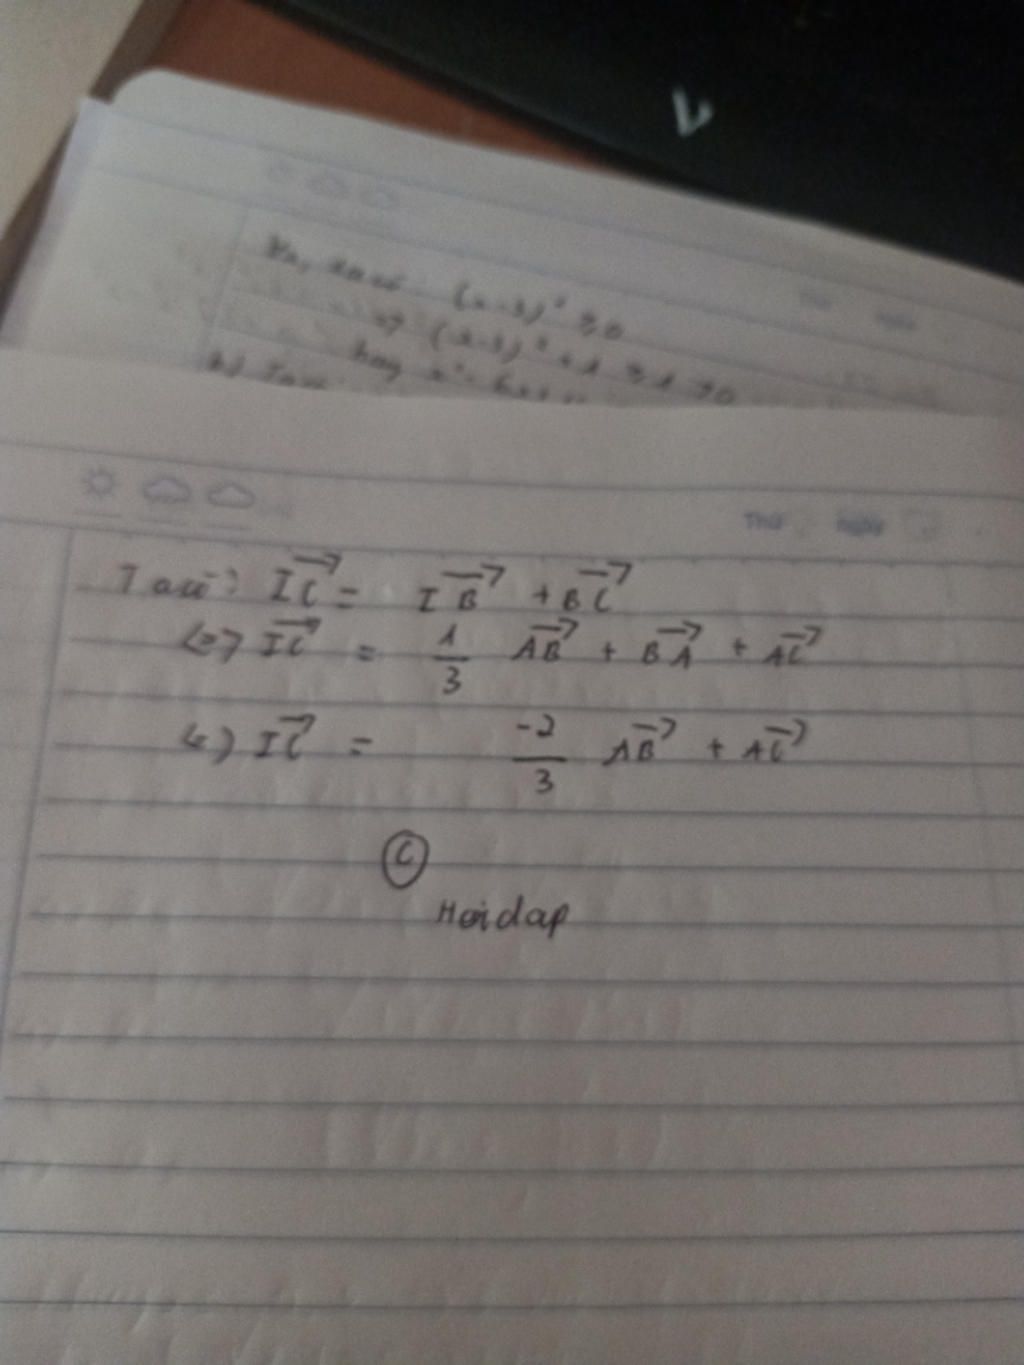 (x-3)² ≥ 0
(x-3)² + 1 ≥ 1 > 0
hay x² - 6x +
b) Ta có:
Thứ Ngày
Ta có: \overrightarrow{IC} = \overrightarrow{IB} + \overrightarrow{BC}
<=> \overrightarrow{IC} = \frac{1}{3} \overrightarrow{AB} + \overrightarrow{BA} + \overrightarrow{AC}
<=> \overrightarrow{IC} = \frac{-2}{3} \overrightarrow{AB} + \overrightarrow{AC}
C
Hoidap